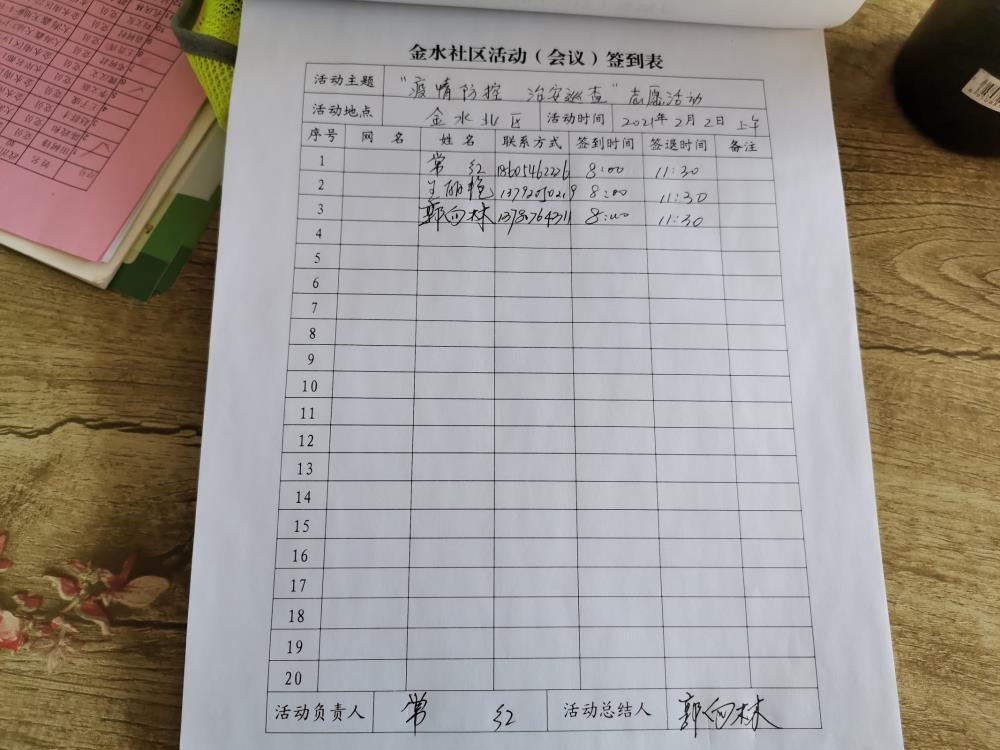 金水社区活动（会议）签到表
活动主题 “疫情防控 治安巡查”志愿活动
活动地点 金水北区 活动时间 2021年2月2日 上午
序号 网 名 姓 名 联系方式 签到时间 签退时间 备注
1 常 红 8:00 11:30
2 王丽艳 13792050219 8:00 11:30
3 郭向林 8:00 11:30
4
5
6
7
8
9
10
11
12
13
14
15
16
17
18
19
20
活动负责人 常 红 活动总结人 郭向林